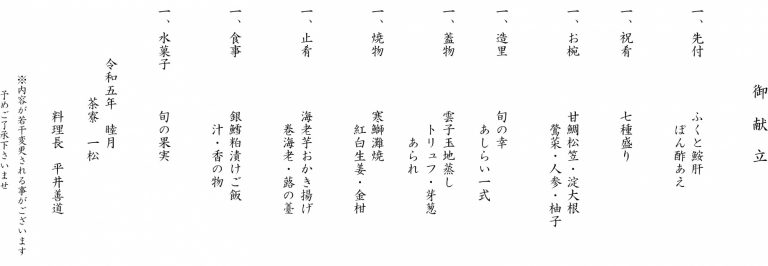 御献立
一、先付
ふくと鮟肝
ぽん酢あえ
一、祝肴
七種盛り
一、お椀
甘鯛松笠・淀大根
鶯菜・人参・柚子
一、造里
旬の幸
あしらい一式
一、蓋物
雲子玉地蒸し
トリュフ・芽葱
あられ
一、焼物
寒鰤灘焼
紅白生姜・金柑
一、止肴
海老芋おかき揚げ
巻海老・蕗の薹
一、食事
銀鱈粕漬けご飯
汁・香の物
一、水菓子
旬の果実
令和五年 睦月
茶寮 一松
料理長 平井善道
※内容が若干変更される事がございます
予めご了承下さいませ